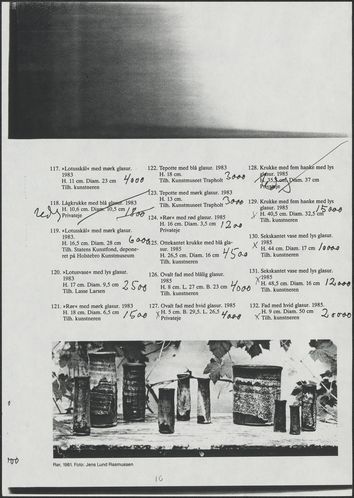 117. »Lotusskål« med mørk glasur.
1983
H. 11 cm. Diam. 23 cm 4000
Tilh. kunstneren
118. Lågkrukke med blå glasur. 1983
H. 10,6 cm. Diam. 10,5 cm
Privateje 1800
119. »Lotusskål« med mørk glasur.
1983.
H. 16,5 cm. Diam. 28 cm 6000
Tilh. Statens Kunstfond, depone-
ret på Holstebro Kunstmuseum
120. »Lotusvase« med lys glasur.
1983
H. 17 cm. Diam. 9,5 cm 2500
Tilh. Lasse Larsen
121. »Rør« med mørk glasur. 1983
H. 18 cm. Diam. 6,5 cm 1500
Tilh. kunstneren
122. Tepotte med blå glasur. 1983
H. 18 cm.
Tilh. Kunstmuseet Trapholt 3000
123. Tepotte med mørk glasur. 1983
H. 13 cm.
Tilh. Kunstmuseet Trapholt 3000
124. »Rør« med rød glasur. 1985
H. 16 cm. Diam. 3,5 cm 1200
Privateje
125. Ottekantet krukke med blå gla-
sur. 1985
H. 26,5 cm. Diam. 16 cm 4500
Tilh. kunstneren
126. Ovalt fad med blålig glasur.
1985
H. 8 cm. L. 27 cm. B. 23 cm 4000
Tilh. kunstneren
127. Ovalt fad med hvid glasur. 1985
H. 5 cm. B. 29,5. L. 26,5
Privateje 4000
128. Krukke med fem hanke med lys
glasur. 1985
H. 35,5 cm. Diam. 37 cm
Privateje
129. Krukke med fire hanke med lys
glasur. 1985 15000
H. 40,5 cm. Diam. 32,5 cm
Tilh. kunstneren
130. Sekskantet vase med lys glasur.
1985
H. 44 cm. Diam. 17 cm 10000
Tilh. kunstneren
131. Sekskantet vase med lys glasur.
1985
H. 48,5 cm. Diam. 16 cm 12000
Tilh. kunstneren
132. Fad med hvid glasur. 1985.
H. 9 cm. Diam. 50 cm 20000
Tilh. kunstneren
Rør, 1981. Foto: Jens Lund Rasmussen
16